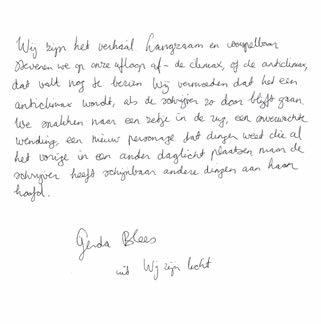 Wij zijn het verhaal. Langzaam en voorspelbaar
stevenen we op onze afloop af - de climax, of de anticlimax,
dat valt nog te bezien. Wij vermoeden dat het een
anticlimax wordt, als de schrijver zo door blijft gaan.
We snakken naar een zetje in de rug, een onverwachte
wending, een nieuw personage dat dingen weet die al
het vorige in een ander daglicht plaatsen maar de
schrijver heeft schijnbaar andere dingen aan haar
hoofd.
Gerda Blees
uit Wij zijn licht